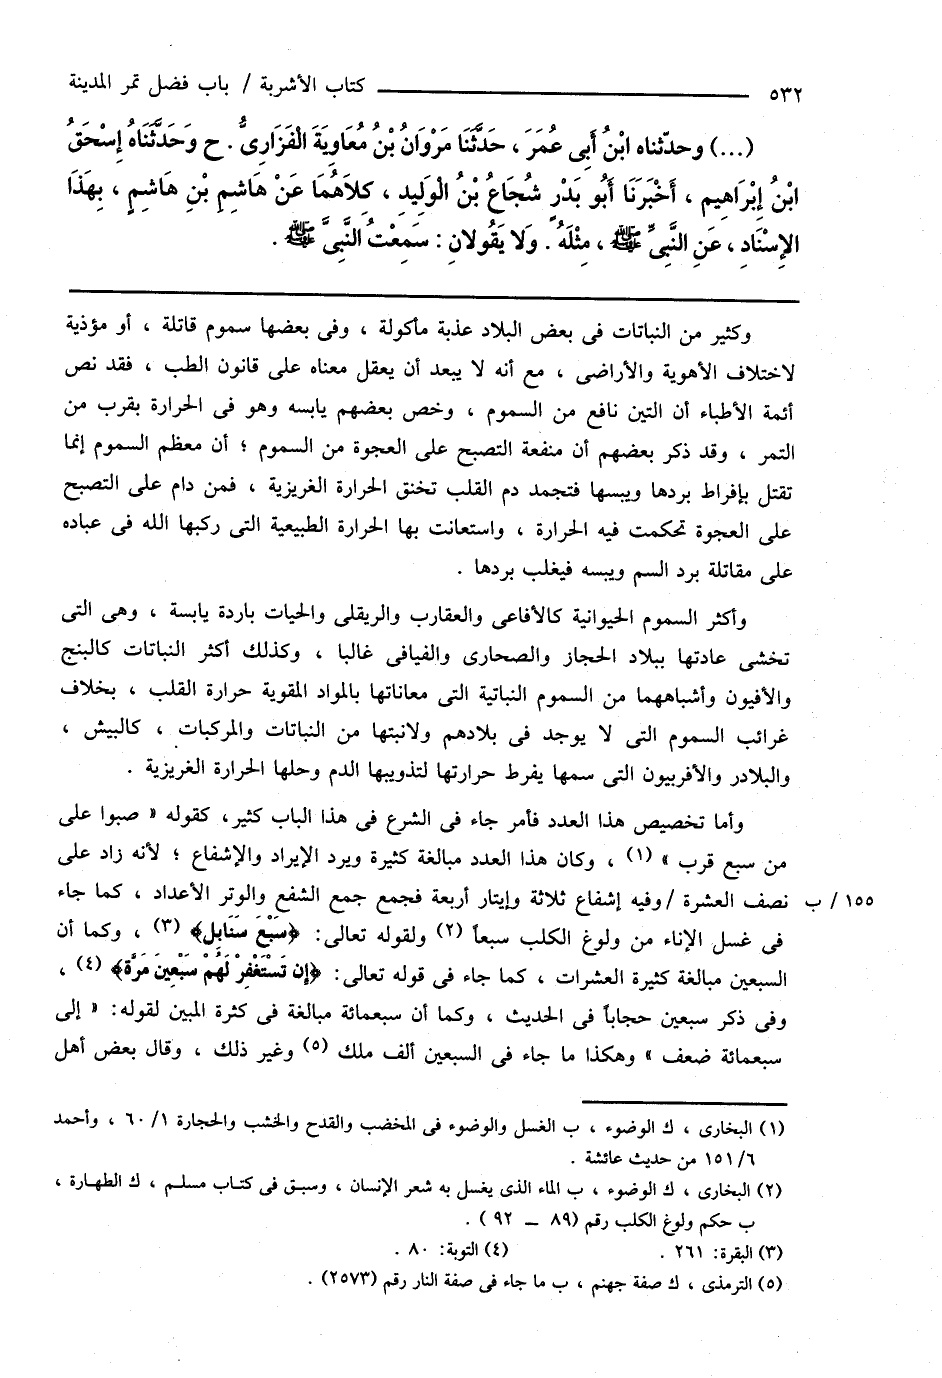 ٥٣٢ ــــــــــــ كتاب الأشربة / باب فضل تمر المدينة
(...) وحدّثناه ابْنُ أَبِى عُمَرَ ، حَدَّثَنَا مَرْوَانُ بْنُ مُعَاوِيَةَ الْفَزَارِىُّ . ح وَحَدَّثَنَاهُ إِسْحَقُ
ابْنُ إِبْرَاهِيم ، أَخْبَرَنَا أَبُو بَدْرٍ شُجَاعُ بْنُ الْوَلِيدِ ، كِلاَهُمَا عَنْ هَاشِمِ بْنِ هَاشِمٍ ، بِهَذَا
الإِسْنَادِ ، عَنِ النَّبِىِّ ﷺ ، مِثْلَهُ . وَلا يَقُولانِ : سَمِعْتُ النَّبِىَّ ﷺ .
وكثير من النباتات فى بعض البلاد عذبة مأكولة ، وفى بعضها سموم قاتلة ، أو مؤذية
لاختلاف الأهوية والأراضى ، مع أنه لا يبعد أن يعقل معناه على قانون الطب ، فقد نص
أئمة الأطباء أن التين نافع من السموم ، وخص بعضهم يابسه وهو فى الحرارة بقرب من
التمر ، وقد ذكر بعضهم أن منفعة التصبح على العجوة من السموم ؛ أن معظم السموم إنما
تقتل بإفراط بردها ويبسها فتجمد دم القلب تخنق الحرارة الغريزية ، فمن دام على التصبح
على العجوة تحكمت فيه الحرارة ، واستعانت بها الحرارة الطبيعية التى ركبها الله فى عباده
على مقاتلة برد السم ويبسه فيغلب بردها .
وأكثر السموم الحيوانية كالأفاعى والعقارب والريقلى والحيات باردة يابسة ، وهى التى
تخشى عادتها ببلاد الحجاز والصحارى والفيافى غالبا ، وكذلك أكثر النباتات كالبنج
والأفيون وأشباههما من السموم النباتية التى معاناتها بالمواد المقوية حرارة القلب ، بخلاف
غرائب السموم التى لا يوجد فى بلادهم ولانبتها من النباتات والمركبات ، كالبيش ،
والبلادر والأفربيون التى سمها يفرط حرارتها لتذويبها الدم وحلها الحرارة الغريزية .
وأما تخصيص هذا العدد فأمر جاء فى الشرع فى هذا الباب كثير، كقوله « صبوا على
من سبع قرب » (١) ، وكان هذا العدد مبالغة كثيرة ويرد الإيراد والإشفاع ؛ لأنه زاد على
١٥٥ / ب نصف العشرة / وفيه إشفاع ثلاثة وإيتار أربعة فجمع جمع الشفع والوتر الأعداد ، كما جاء
فى غسل الإناء من ولوغ الكلب سبعاً (٢) ولقوله تعالى: ﴿سَبْعَ سَنَابِل﴾ (٣) ، وكما أن
السبعين مبالغة كثيرة العشرات ، كما جاء فى قوله تعالى: ﴿إِن تَسْتَغْفِرْ لَهُمْ سَبْعِينَ مَرَّة﴾ (٤) ،
وفى ذكر سبعين حجاباً فى الحديث ، وكما أن سبعمائة مبالغة فى كثرة المبين لقوله: « إلى
سبعمائة ضعف » وهكذا ما جاء فى السبعين ألف ملك (٥) وغير ذلك ، وقال بعض أهل
(١) البخارى ، ك الوضوء ، ب الغسل والوضوء فى المخضب والقدح والخشب والحجارة ١/ ٦٠ ، وأحمد
٦/ ١٥١ من حديث عائشة .
(٢) البخارى ، ك الوضوء ، ب الماء الذى يغسل به شعر الإنسان ، وسبق فى كتاب مسلم ، ك الطهارة ،
ب حكم ولوغ الكلب رقم (٨٩ ــ ٩٢ ) .
(٣) البقرة: ٢٦١ . (٤) التوبة: ٨٠ .
(٥) الترمذى ، ك صفة جهنم ، ب ما جاء فى صفة النار رقم (٢٥٧٣) .